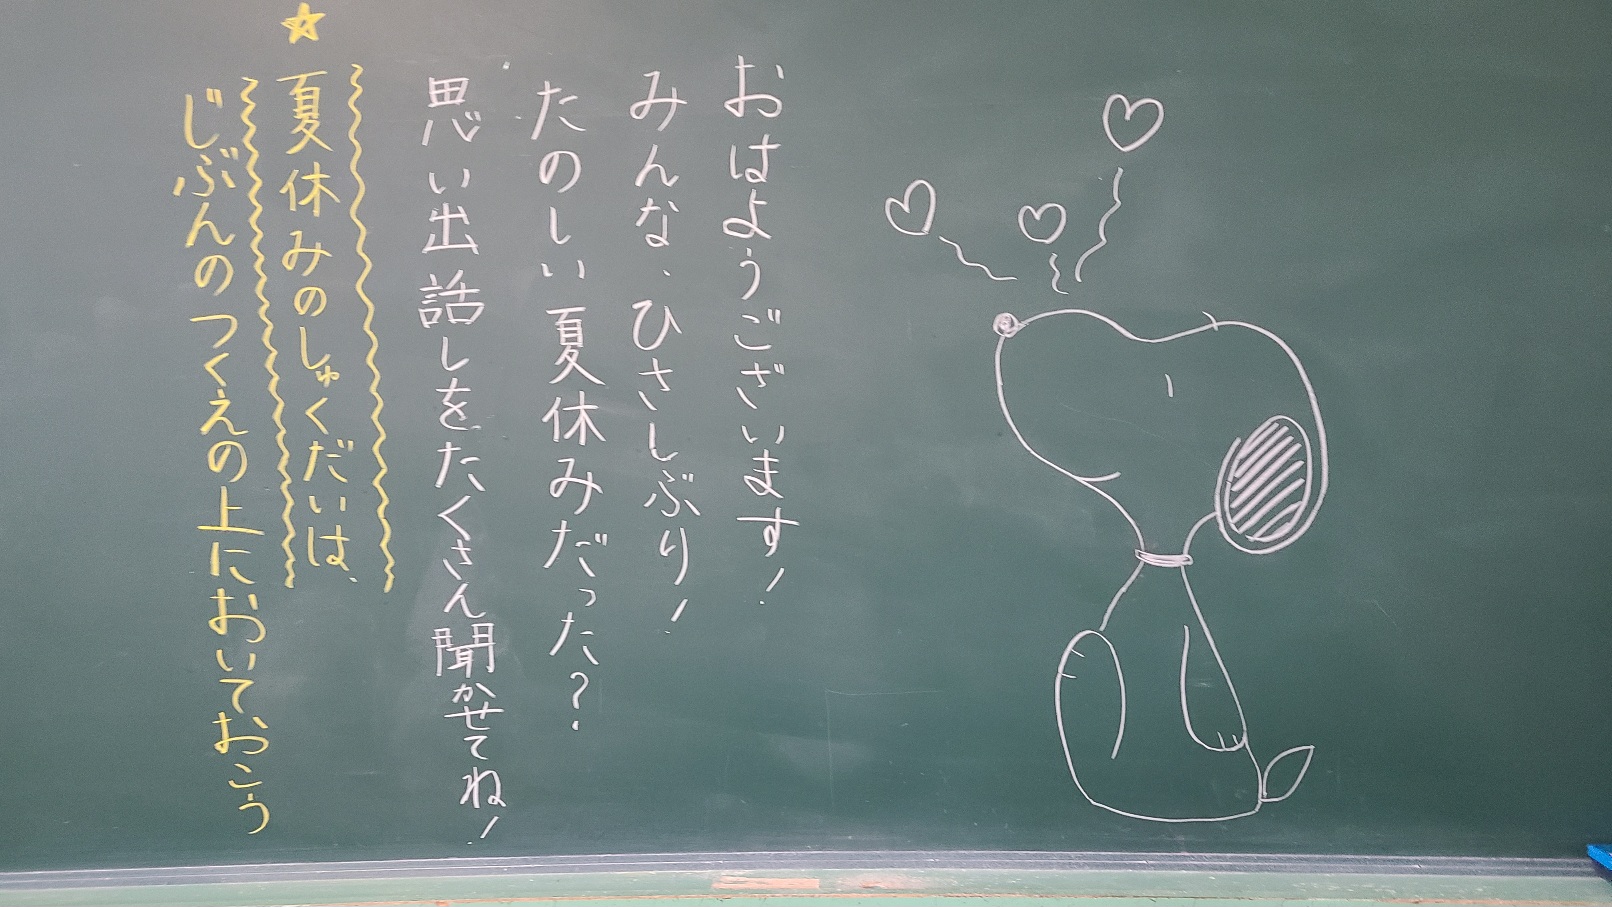 おはようございます!
みんな、ひさしぶり!
たのしい夏休みだった?
思い出話しをたくさん聞かせてね!
☆夏休みのしゅくだいは、
じぶんのつくえの上においておこう